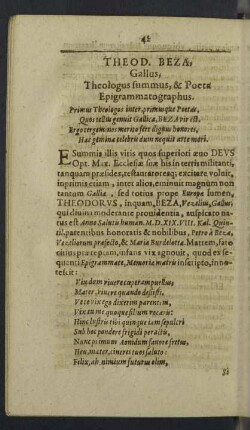 42
THEOD. BEZA,
Gallus,
Theologus summus, & Poeta
Epigrammatographus.
Primus Theologos inter, primusque Poetas,
Quos tellus genuit Gallica, BEZA vir est.
Ergo tergeminos merito fert dignus honores,
Hac gemina celebris dum arte mori.
E Summis illis vitis quos superiori ævo DEVS
Opt. Max. Ecclesiæ suæ his in terris militanti,
tanquam præsides, excitare voluit,
inprimis etiam, inter alios, eminuit magnum non
tantum Gallia, sed totius prope Europæ lumen,
THEODORVS, inquam, BEZA, Vezelius, Gallus
quidam moderatæ prædentia, auspicato na-
tus est Anno Salutis humanæ M.D.XIX. VIII. Kal. Quin-
til. parentibus honoratis & nobilibus, Petro à Beza,
Vezeliorum præfecto, & Maria Burdelotia. Matrem, fa-
cies præreptam, infans vix agnovit, quod ex se-
quenti Epigrammate, Memoriæ matris inscripto, inno-
tescit:
Vix dum vivere cœperam puellus,
Mater, vivere quando desisti,
Vixque ego dixeram parentem,
Vix eum me quoque filium vocare:
Hinc
Sub hoc pondere frigidi peraltis,
Nunc primum Aonidum favore fretus,
Heu, mater, cineres tuos saluto:
Felix, ah, nimium futurus olim,
Si